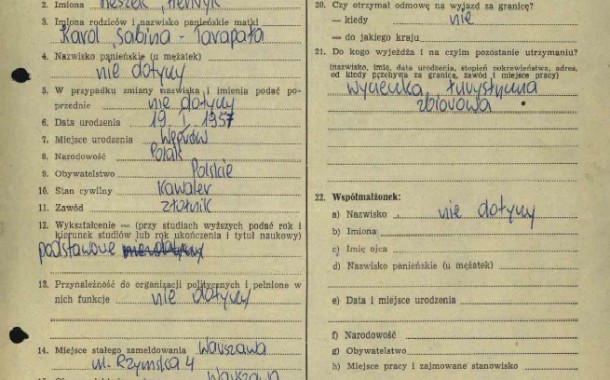 2. Imiona Leszek, Henryk
3. Imiona rodziców i nazwisko panieńskie matki
Karol, Sabina - Tarapata
4. Nazwisko panieńskie (u mężatek)
nie dotyczy
5. W przypadku zmiany nazwiska i imienia podać po-
przednie nie dotyczy
6. Data urodzenia 19. I. 1957
7. Miejsce urodzenia Węgrów
8. Narodowość Polak
9. Obywatelstwo Polskie
10. Stan cywilny Kawaler
11. Zawód złotnik
12. Wykształcenie — (przy studiach wyższych podać rok i
kierunek studiów lub rok ukończenia i tytuł naukowy)
podstawowe
13. Przynależność do organizacji politycznych i pełnione w
nich funkcje nie dotyczy
14. Miejsce stałego zameldowania Warszawa
ul. Rzymska 4
Warszawa
20. Czy otrzymał odmowę na wyjazd za granicę?
— kiedy nie
— do jakiego kraju
21. Do kogo wyjeżdża i na czyim pozostanie utrzymaniu?
(nazwisko, imię, data urodzenia, stopień pokrewieństwa, adres,
od kiedy przebywa za granicą, zawód i miejsce pracy)
wycieczka turystyczna
zbiorowa
22. Współmałżonek:
a) Nazwisko nie dotyczy
b) Imiona
c) Imię ojca
d) Nazwisko panieńskie (u mężatek)
e) Data i miejsce urodzenia
f) Narodowość
g) Obywatelstwo
h) Miejsce pracy i zajmowane stanowisko